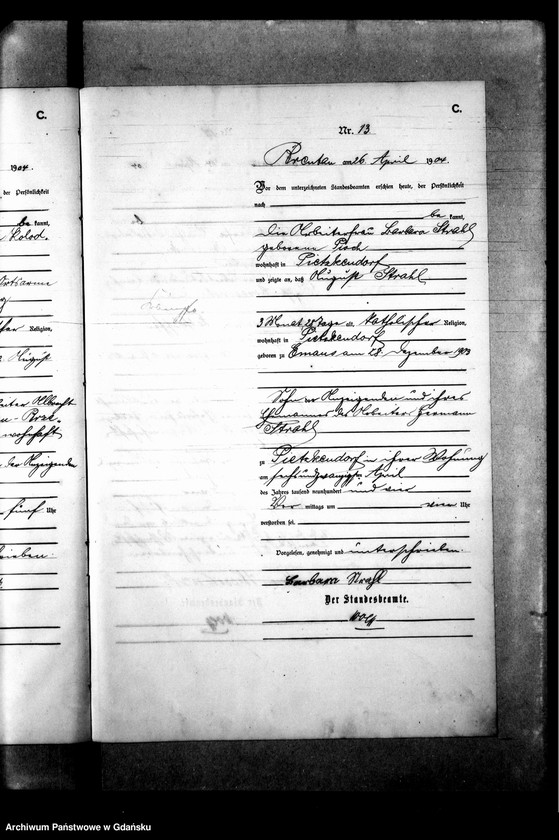 C.
1904.
der Persönlichkeit
be kannt,
Kolod.
Ortsarme
Religion,
August
Albrecht
wohnhaft
der Anzeigenden
fünf Uhr
C.
Nr. 13.
Brentau am 26 April 1904.
Vor dem unterzeichneten Standesbeamten erschien heute, der Persönlichkeit
nach
be kannt,
die Arbeiterfrau Barbara Strahl
geborene
wohnhaft in Pietzkendorf
und zeigte an, daß August Strahl
3 Monat 28 Tage a. katholischer Religion,
wohnhaft in Pietzkendorf
geboren zu Emaus am 28. Dezember 1903
Sohn der Anzeigenden und ihres
Ehemannes des Arbeiters Hermann
Strahl
zu Pietzkendorf in ihrer Wohnung
am sechsundzwanzigsten April
des Jahres tausend neunhundert und vier
Vor mittags um vier Uhr
verstorben sei.
Vorgelesen, genehmigt und unterschrieben.
Barbara Strahl
Der Standesbeamte.
Archiwum Państwowe w Gdańsku